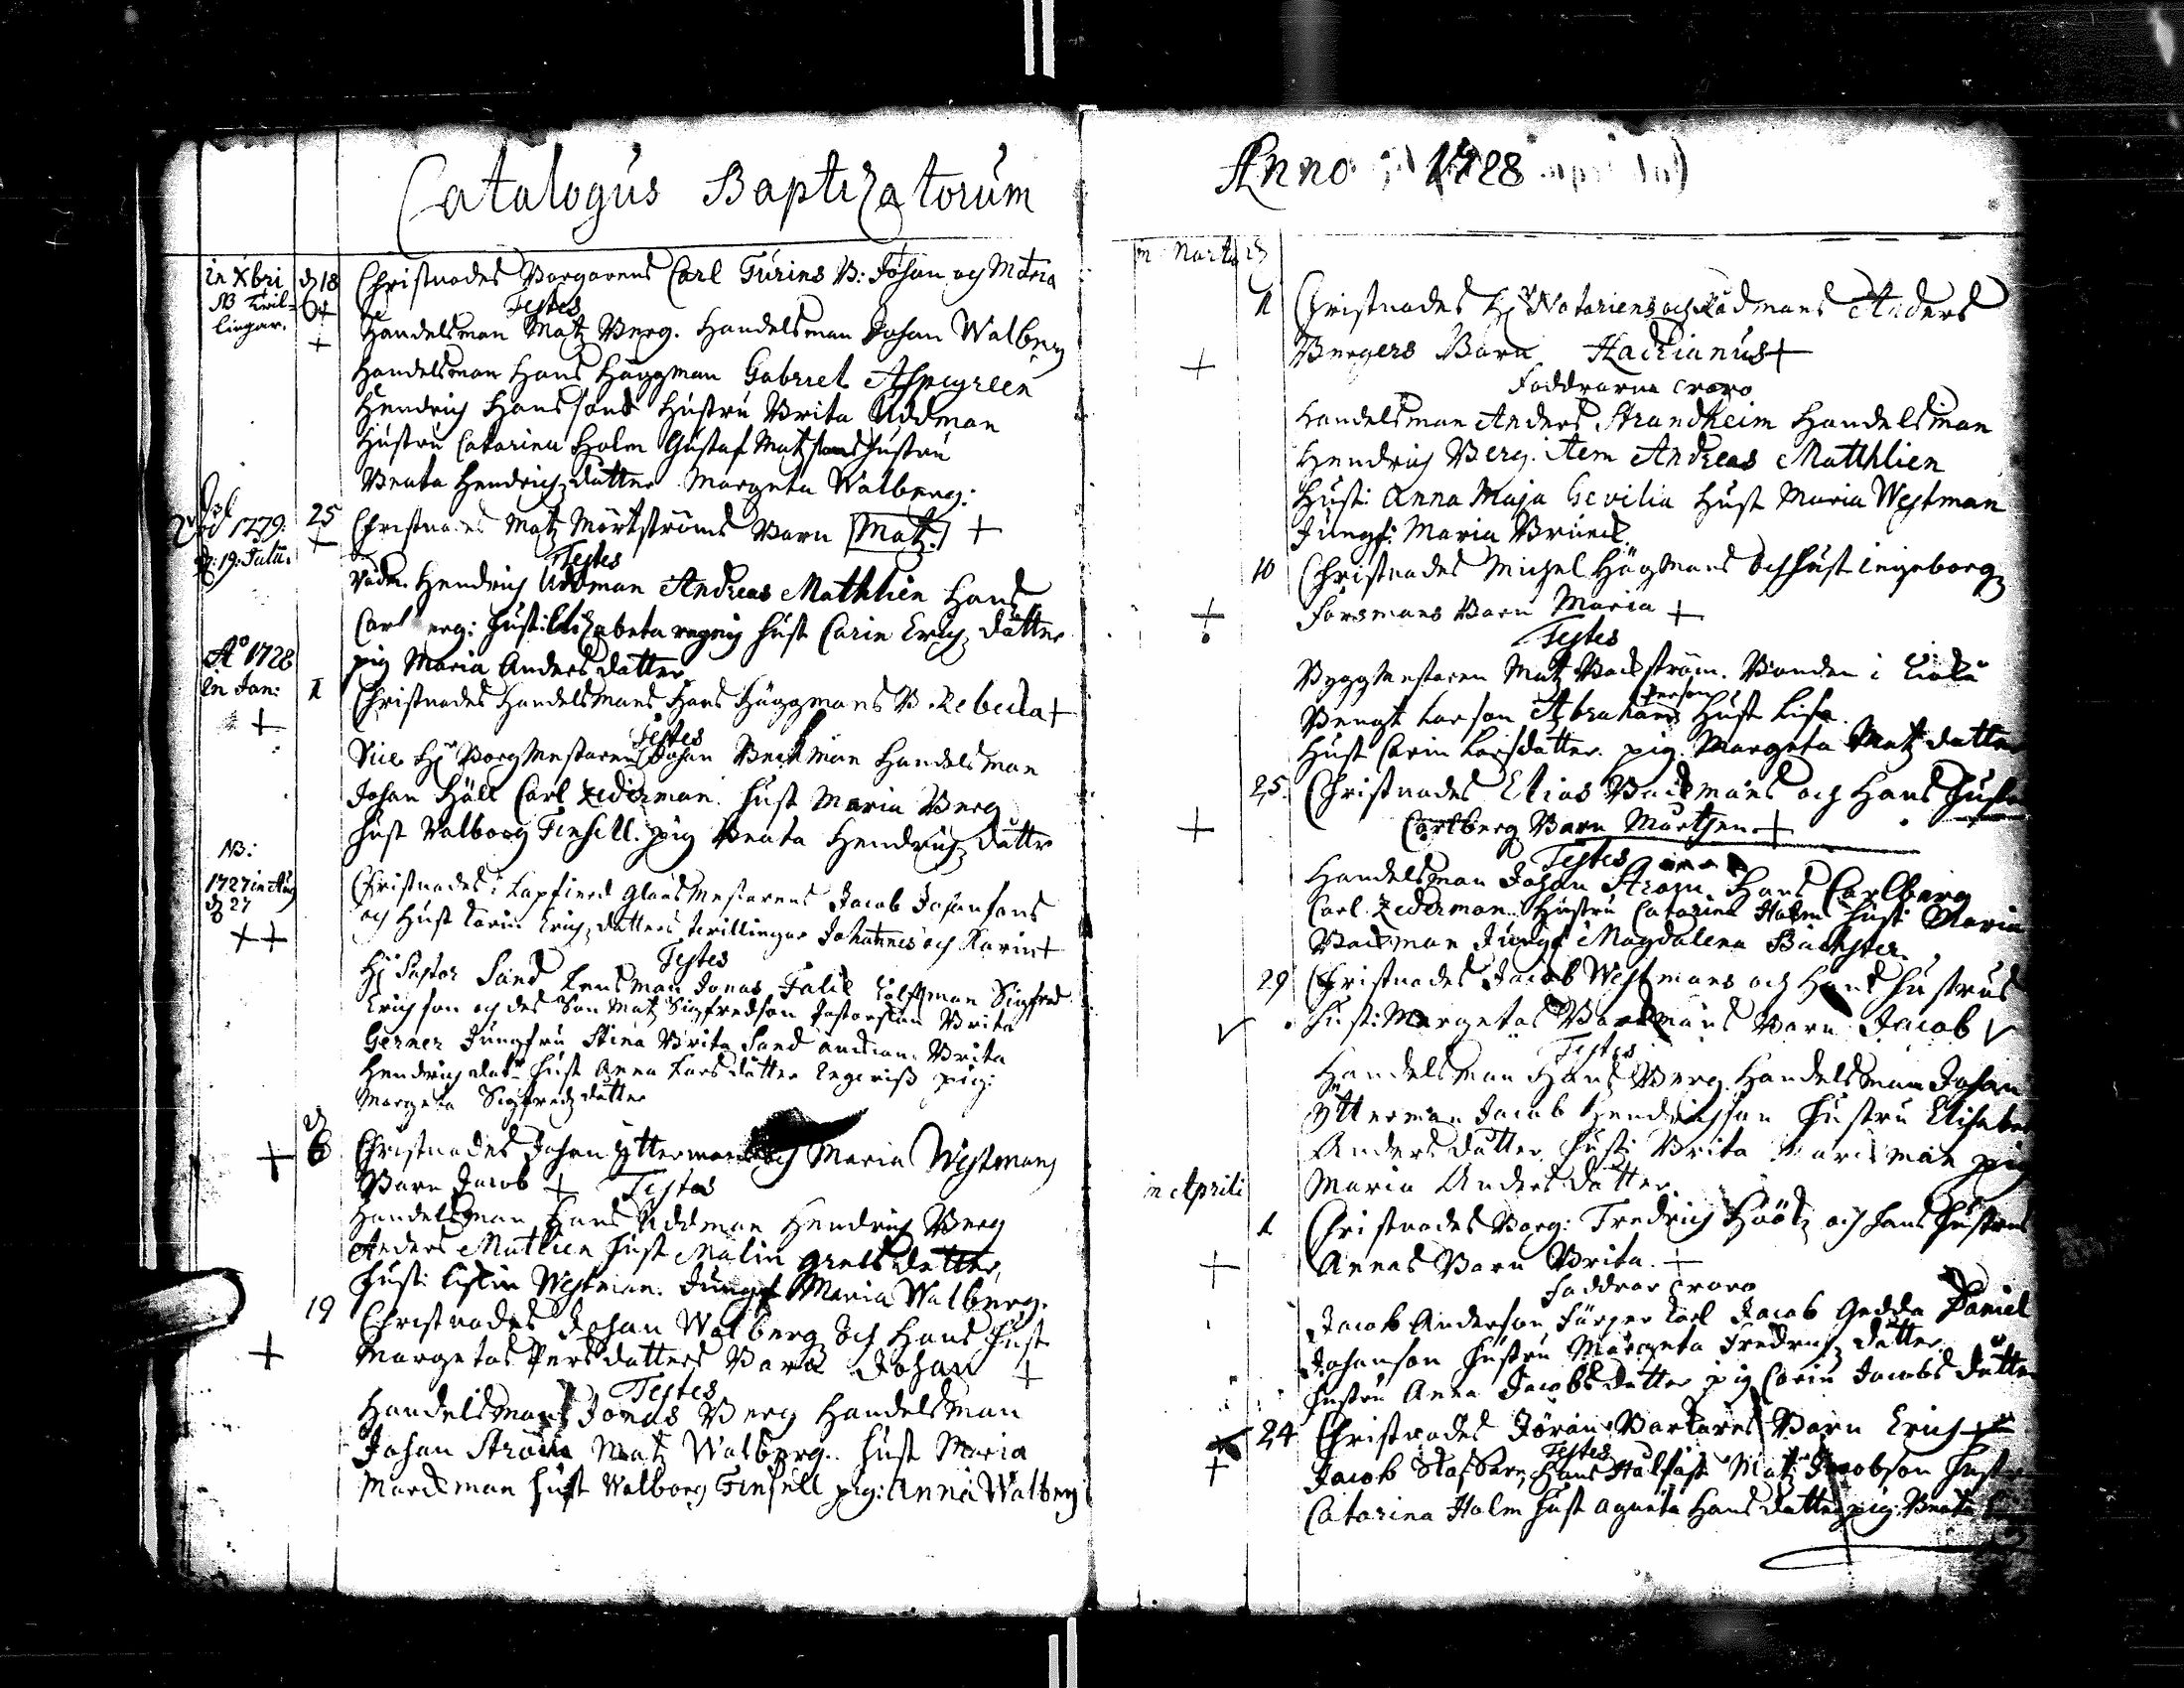 Catalogus Baptizatorum
in Xbri
NB Tvil-
lingar.
d 18
Christnades Borgarens Carl Turins B: Johan och Maria
Testes
Handelsman Matz Berg. Handelsman Johan Walberg
Handelsman Hans Häggman Gabriel Aspegreen
Hendrich Hanssons Hustru Brita Uddman
Hustru Catarina Holm Gustaf Matzsons hustru
Beata Hendrichzdotter Margeta Walberg:
1779.
d. 19. Julii.
25
Christnades Matz Mörtströms Barn Matz. +
Testes
Hendrich Uddman Andreas Mathlien Hans
Carl erg: Hust: Elizabeta hust Carin Erichzdotter
pig Maria Andersdotter
Ao 1728
in Jan:
1
Christnades Handelsmans Hans Häggmans B. Rebecka +
Testes
Vice Hr Borgmestaren Johan Beckman Handelsman
Johan Häll Carl Zederman. Hust Maria Berg
Hust Valborg Finsell. pig Beata Hendrichzdotter
NB:
1727 in Aug
d 27
Christnades i Lapfierd Glasmestarens Jacob Johansons
och Hust Karin Erichzdotters tvillingar Johannes och Karin +
Testes
Hr Pastor Sand Lensman Jonas Falck Tolfman Sigfred
Erichson och des Son Matz Sigfredson Pastorskan Brita
Gerner Jungfru Stina Brita Sand Brita
Hendrichzdotr Hust Anna Larsdotter pig:
Margeta Sigfredzdotter
6
Christnades Johan Ytterman och Maria Westmans
Barn Jacob + Testes
Handelsman Hans Uddman Hendrich Berg
Anders Mathlien Hust Malin dotter,
Hust: Westman. Jungf Maria Walberg.
19
Christnades Johan Walberg och Hans Hust
Margetas Persdotters Barn Johan +
Testes
Handelsman Jonas Berg Handelsman
Johan Ström Matz Walberg. Hust Maria
Hust Valborg Finsell pig: Anna Walberg
Anno 1728
in Martio
1
Christnades Hr Notariens och Rådmans Anders
Bergers Barn Hadrianus +
Faddrarna voro
Handelsman Anders Strandheim Handelsman
Hendrich Berg. item Andreas Matthlien
Hust: Anna Maja Gevilia Hust Maria Westman
Jungf: Maria
10
Christnades Michel Hägmans och Hust Ingeborg
Forsmans Barn Maria +
Testes
Byggmestaren Matz Backström. Bonden i
Bengt Larson Abraham Person Hust Lisa.
Hust Carin Larsdotter. pig. Margeta Matzdotter
25.
Christnades Elias Backmans och Hans Hustru
Carlberg Barn Mårthen +
Testes
Handelsman Johan Ström Hans Carlberg
Carl Zederman. Hustru Catarina Holm Hust: Maria
Backman Jungf: Magdalena
29
Christnades Jacob Westmans och Hans Hustrus
Hust: Margetas Barn Jacob
Testes
Handelsman Hans Berg Handelsman Johan
Ytterman Jacob Hendrichson Hustru Elisabet
Andersdotter Hust: Brita pig
Maria Andersdotter
in Aprili
1
Christnades Borg: Fredrich Höök och hans Hustrus
Annas Barn Brita. +
Faddrar voro
Jacob Anderson Carl Jacob Gedda Daniel
Johanson Hustru Margeta Fredrichzdotter.
Hustru Anna Jacobsdotter pig Carin Jacobsdotter
24
Christnades Jöran Barn Erich +
Testes
Jacob Hans Matz Jacobson Hustru
Catarina Holm Hust Agneta Hansdotter pig: Beata